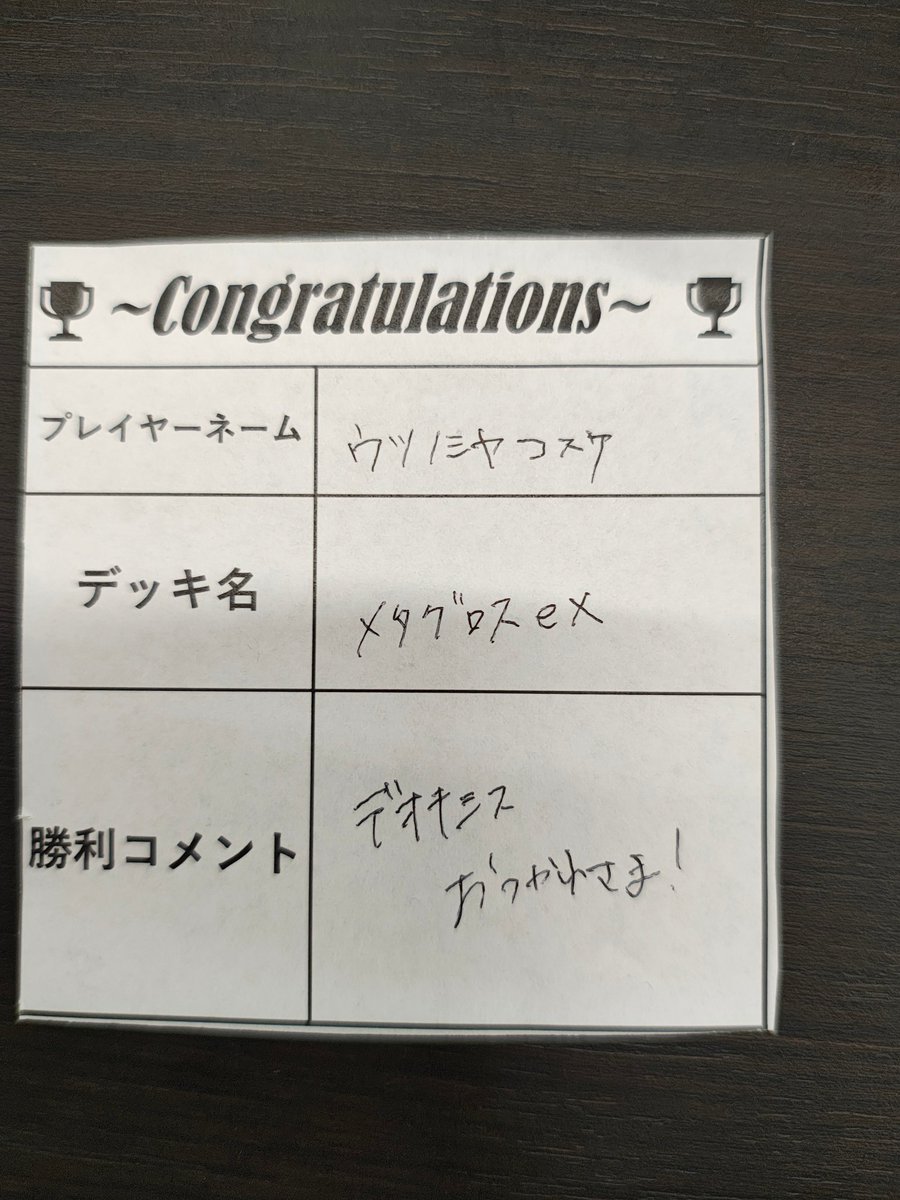 ~Congratulations~
プレイヤーネーム
ウツノミヤコスケ
デッキ名
メタグロスex
勝利コメント
デオキシス
おつかれさま!